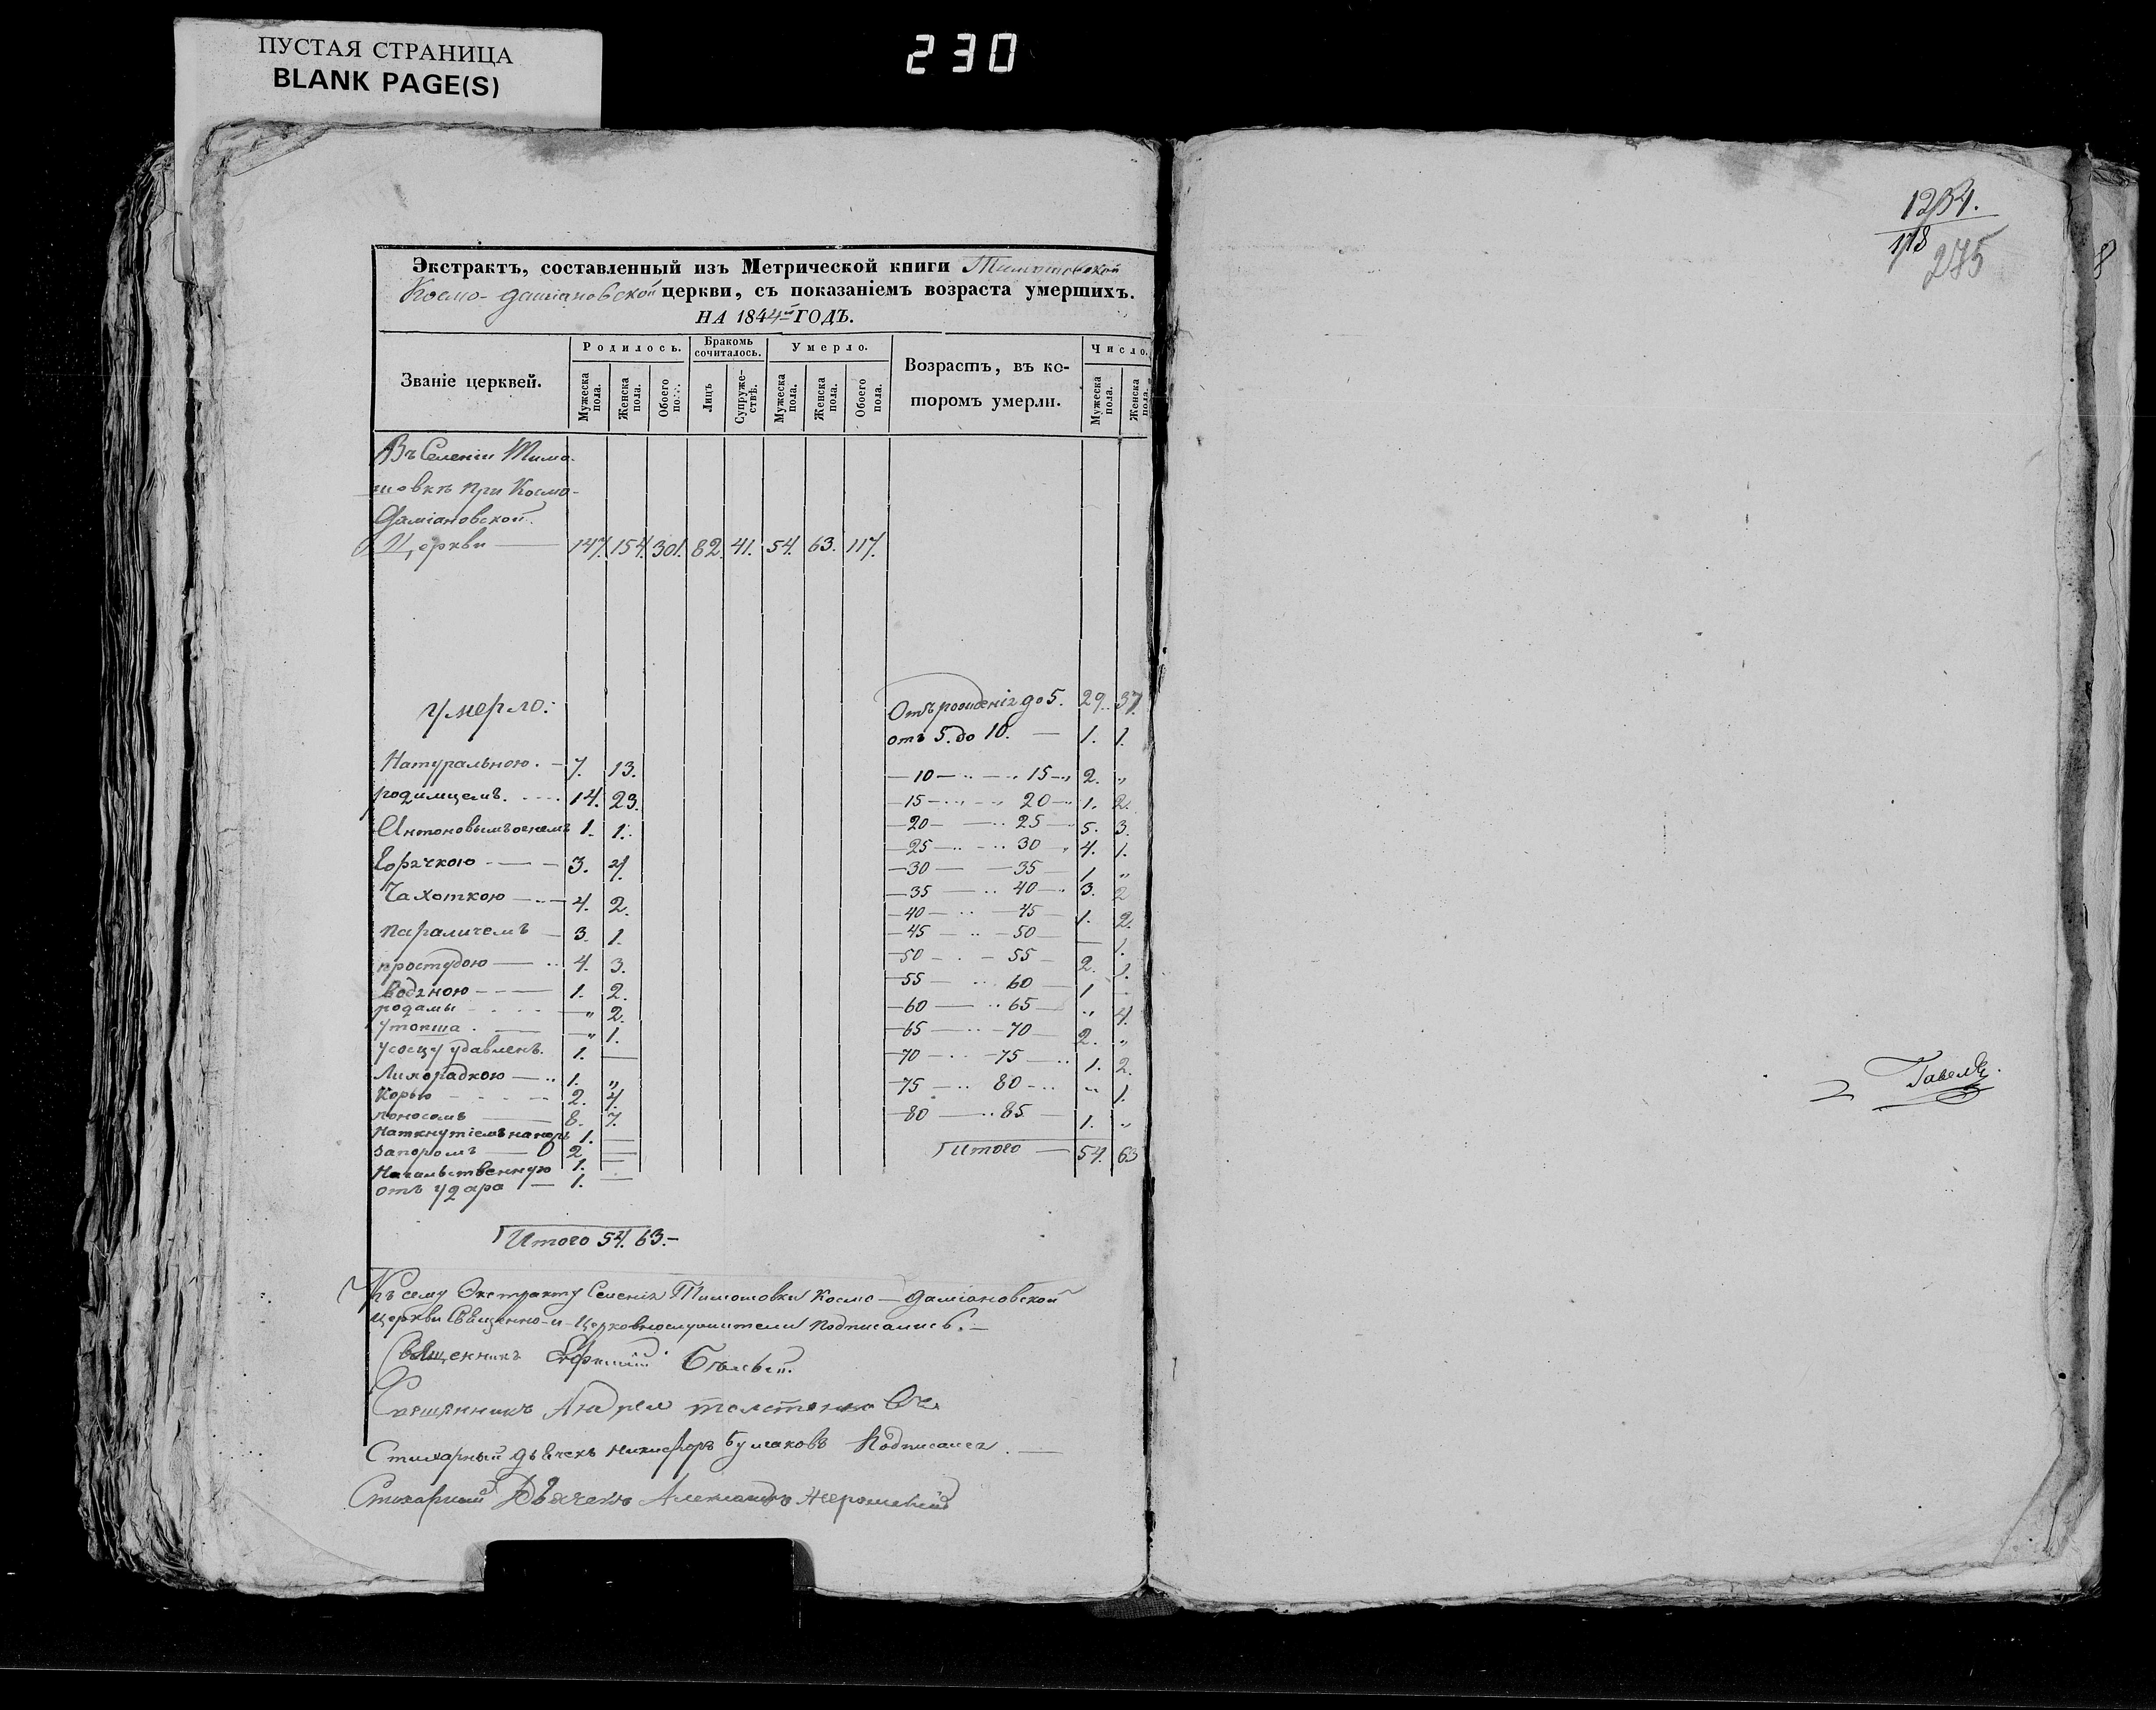 ПУСТАЯ СТРАНИЦА
BLANK PAGE(S)
230
Экстрактъ, составленный изъ Метрической книги Тимошовской
Космо-даміановской церкви, съ показаніемъ возраста умершихъ.
НА 1844й ГОДЪ.
Званіе церквей. Родилось. Бракомъ сочиталось. Умерло. Возрастъ, въ которомъ умерли. Число.
Мужеска пола. Женска пола. Обоего пола. Лицъ Супружествъ. Мужеска пола. Женска пола. Обоего пола. Мужеска пола. Женска пола.
Въ Селеніи Тимо-
шовкѣ при Космо-
Даміановской
Церкви — 147. 154. 301. 82. 41. 54. 63. 117.
Умерло:
Отъ рожденія до 5. 29. 37.
отъ 5. до 10. — 1. 1.
Натуральною. — 7. 13.
—10— 15— 2. „
родимцемъ. 14. 23.
—15— 20— 1. 2.
Антоновымъ огнемъ 1. 1.
—20— 25— 5. 3.
—25— 30 4. 1.
Горячкою — 3. 4.
—30— —35— 1. „
Чахоткою — 4. 2.
—35— 40— 3. 2
—40— —45— 1. 2.
Параличемъ — 3. 1.
—45— —50— — 1.
простудою — 4. 3.
—50— —55— 2. 1.
водяною — 1. 2.
—55— 60— 1 -
родами — „ 2.
—60— 65— „ 4.
утопша — „ 1.
—65— —70— 2. „
усоецу удавленъ. 1. —
—70— —75— 1. 2.
Лихорадкою — 1. „
—75— 80— „ 1.
Корью — 2. 4.
поносомъ — 8. 7.
—80— 85— 1. „
1. —
запоромъ — 2. —
Итого — 54. 63
1. —
отъ удара — 1. —
Итого 54. 63.—
Къ сему Экстракту Селенія Тимошовки Космо-даміановской
Церкви Священно-и-Церковнослужители подписались.—
Священникъ Бѣлый.
Священникъ Андрей
Стихарный дьячекъ Никифоръ Булгаковъ Подписался.—
Стихарный Дьячекъ Александръ
1234.
178
275